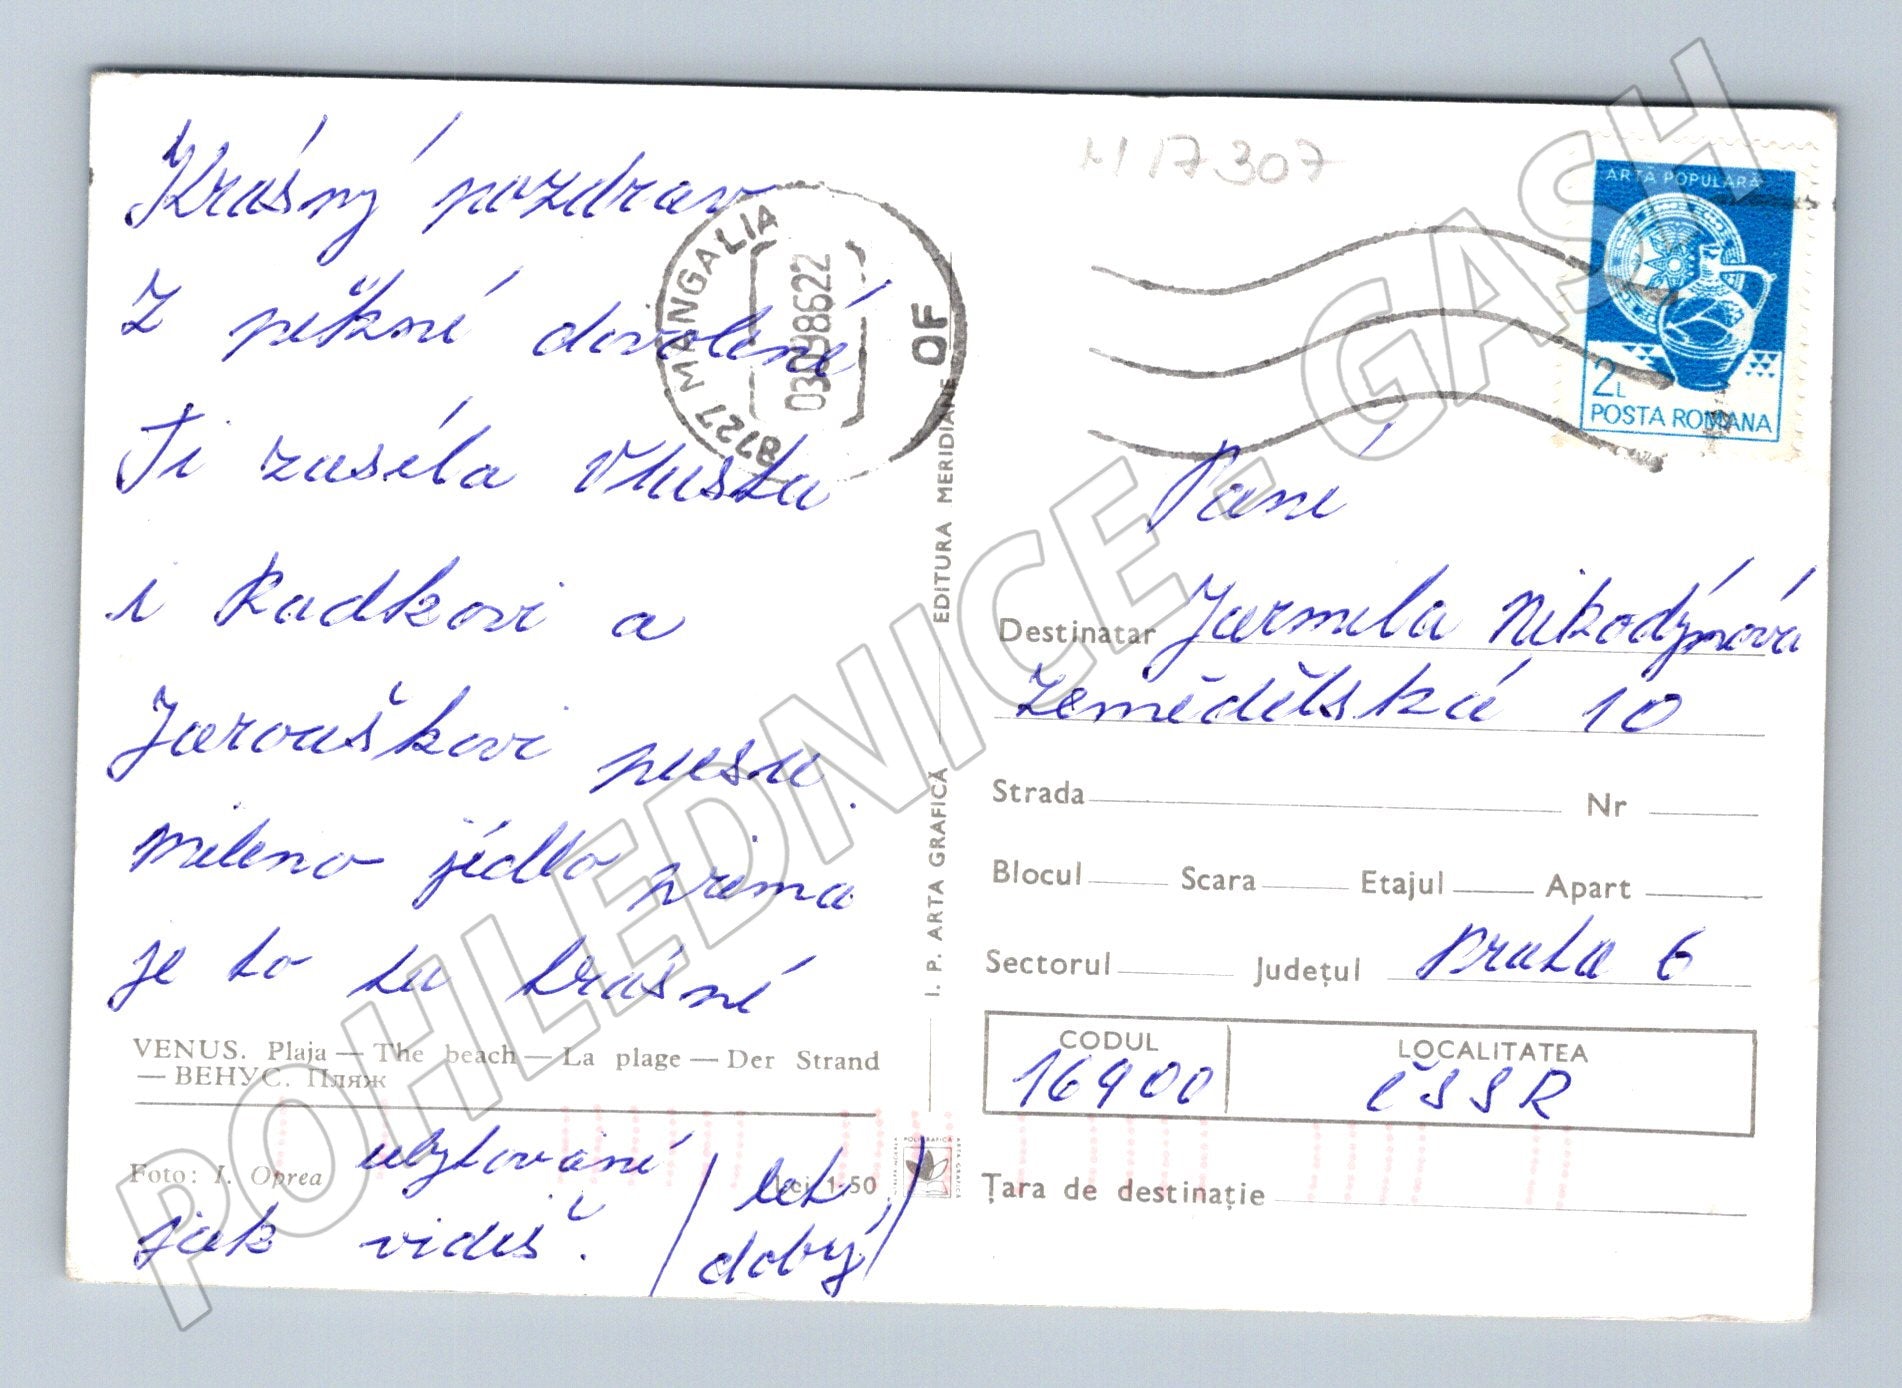 Krásný pozdrav
z pěkné dovolené
Ti zasílá Vlasta
i Radkovi a
Jarouškovi pusu
mileno jídlo prima
je to tu krásné
VENUS. Plaja — The beach — La plage — Der Strand
— ВЕНУС. Пляж
ubytování
Foto: I. Oprea
Lei 1·50
jak vidíš.
let dobrý
8727 MANGALIA
OF
EDITURA MERIDIANE
I. P. ARTA GRAFICĂ
POLIGRAFICA
ARTA GRAFICA
M 17307
ARTA POPULARĂ
2L
POSTA ROMANA
Paní
Destinatar Jarmila Nikodýmová
Zemědělská 10
Strada Nr
Blocul Scara Etajul Apart
Sectorul Județul Praha 6
CODUL LOCALITATEA
16900 ČSSR
Țara de destinație
POHLEDNICE - GASH